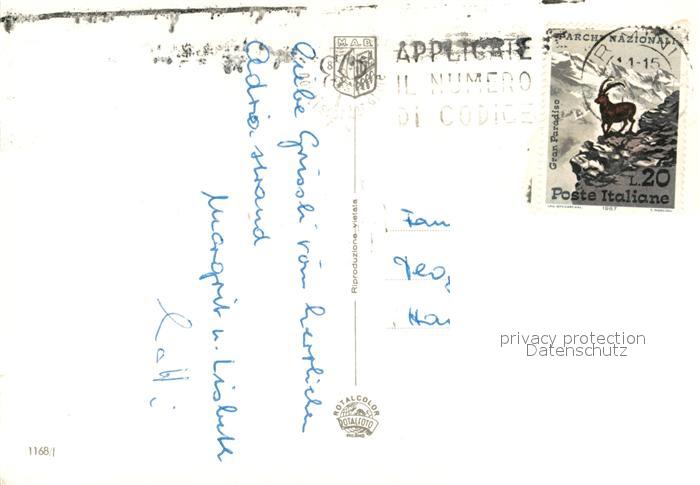 Liebe Grüssli vom herrlichen
Adria strand
Margrit u. Lisbeth
M.A.B.
APPLICATE
IL NUMERO
DI CODICE
PARCHI NAZIONALI
11-15
Gran Paradiso
L.20
Poste Italiane
1967
Riproduzione vietata
ROTALCOLOR
ROTALFOTO
MILANO
privacy protection
Datenschutz
1168/I